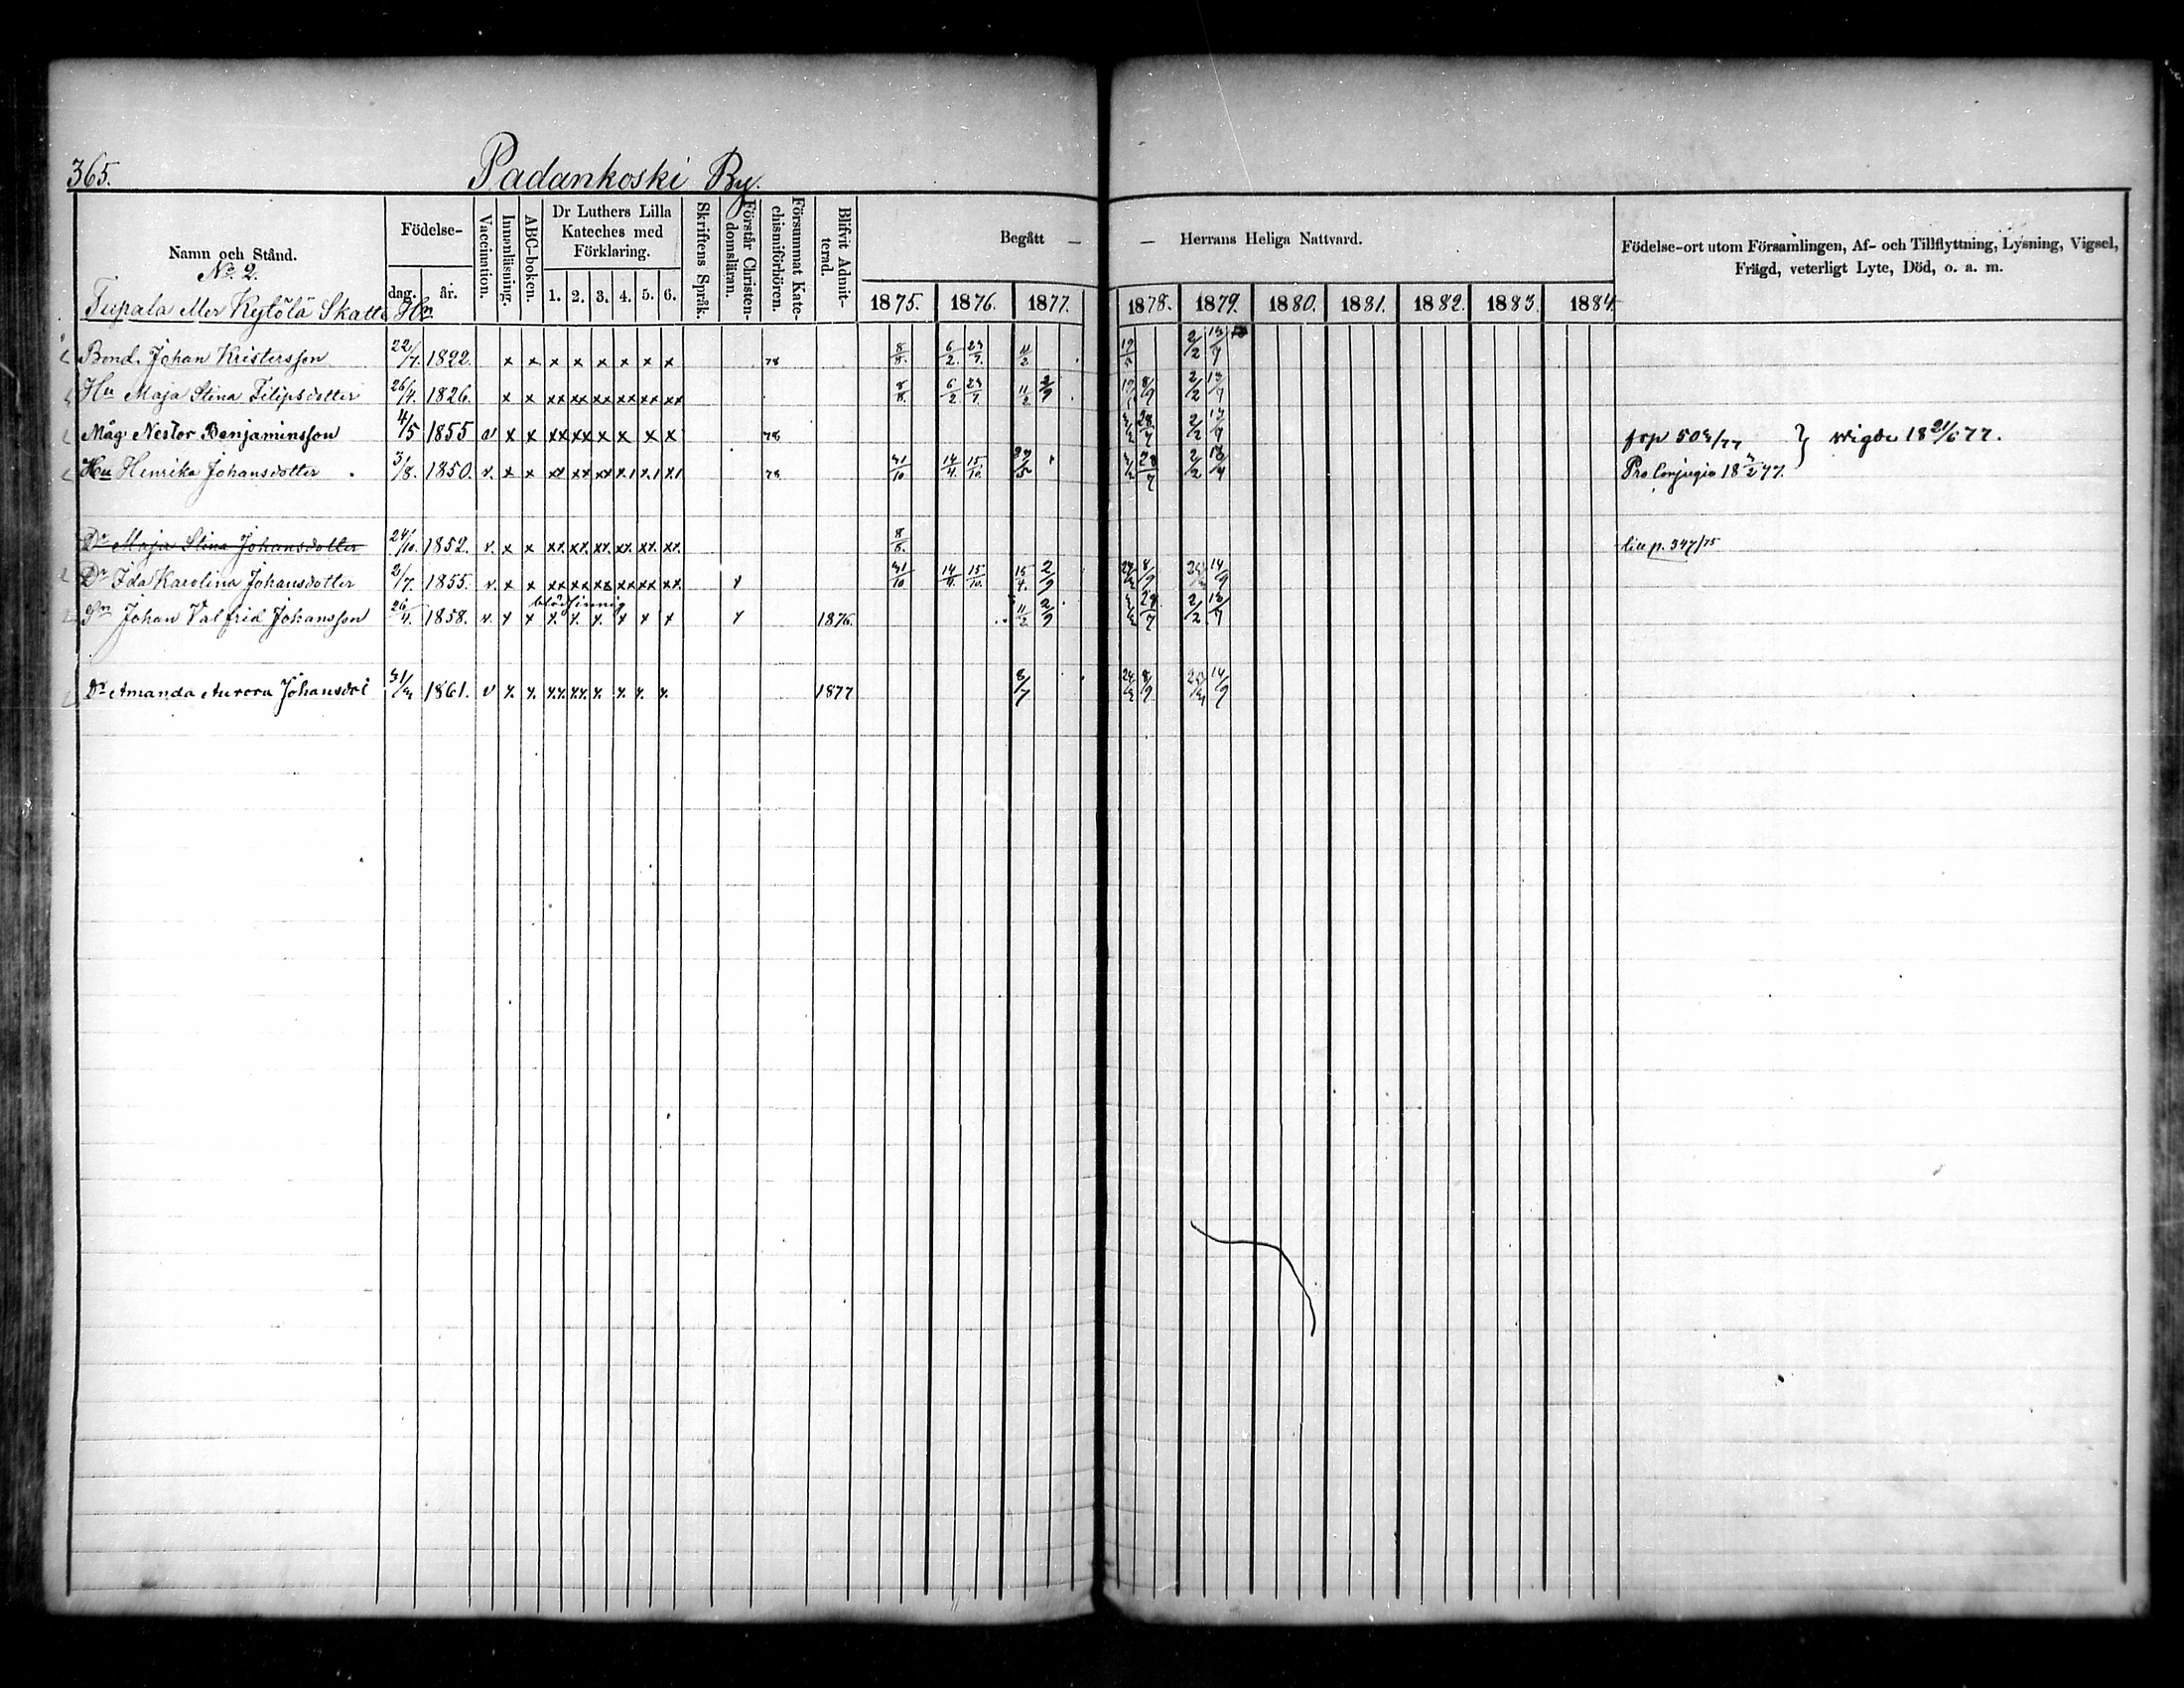 365.
Padankoski By.
Namn och Stånd.
No. 2.
Tupala eller Kylölä Skatte Hn.
Födelse-
dag. år.
Vaccination.
Innanläsning.
ABC-boken.
Dr Luthers Lilla
Kateches med
Förklaring.
1. 2. 3. 4. 5. 6.
Skriftens Språk.
Förstår Christen-
domsläran.
Försummat Kate-
chismiförhören.
Blifvit Admit-
terad.
Begått — — Herrans Heliga Nattvard.
1875. 1876. 1877. 1878. 1879. 1880. 1881. 1882. 1883. 1884.
Födelse-ort utom Församlingen, Af- och Tillflyttning, Lysning, Vigsel,
Frägd, veterligt Lyte, Död, o. a. m.
Bond. Johan Kristersson 22/7. 1822. x x x x x x x x 78 8/8. 6/2. 23/7. 11/2 2/2
Hu Maja Stina Filipsdotter 26/4. 1826. x x xx xx xx xx xx xx 8/8. 6/2. 23/7. 11/2 2/9 8/9 2/2
Måg Nestor Benjaminsson 4/5 1855 v x x xx xx x x x x 78 2/2 } vigde 18 21/6 77.
Hu Henrika Johansdotter 3/8. 1850. v. x x xx xx xx x1 x1 x1 78 31/10 14/4. 15/10. 28/7 2/2 Pro Conjugio 18 77.
Dr Maja Stina Johansdotter 24/10. 1852. v. x x xx. xx. xx. xx. xx. xx. 8/8. p. 347/75
Dr Ida Karolina Johansdotter 2/7. 1855. v. x x xx xx xx xx xx xx. x 31/10 15/10. 15/4. 2/9 8/9 14/9
blödsinnig
Sn Johan Valfrid Johansson 26/4. 1858. v. x x x. x. x. x x x x 1876. 11/2 2/9 28/7 2/2
Dr Amanda Aurora Johansdot 31/3 1861. v x. x. xx. xx. x. x. x. x. 1877 8/7 8/9 14/9